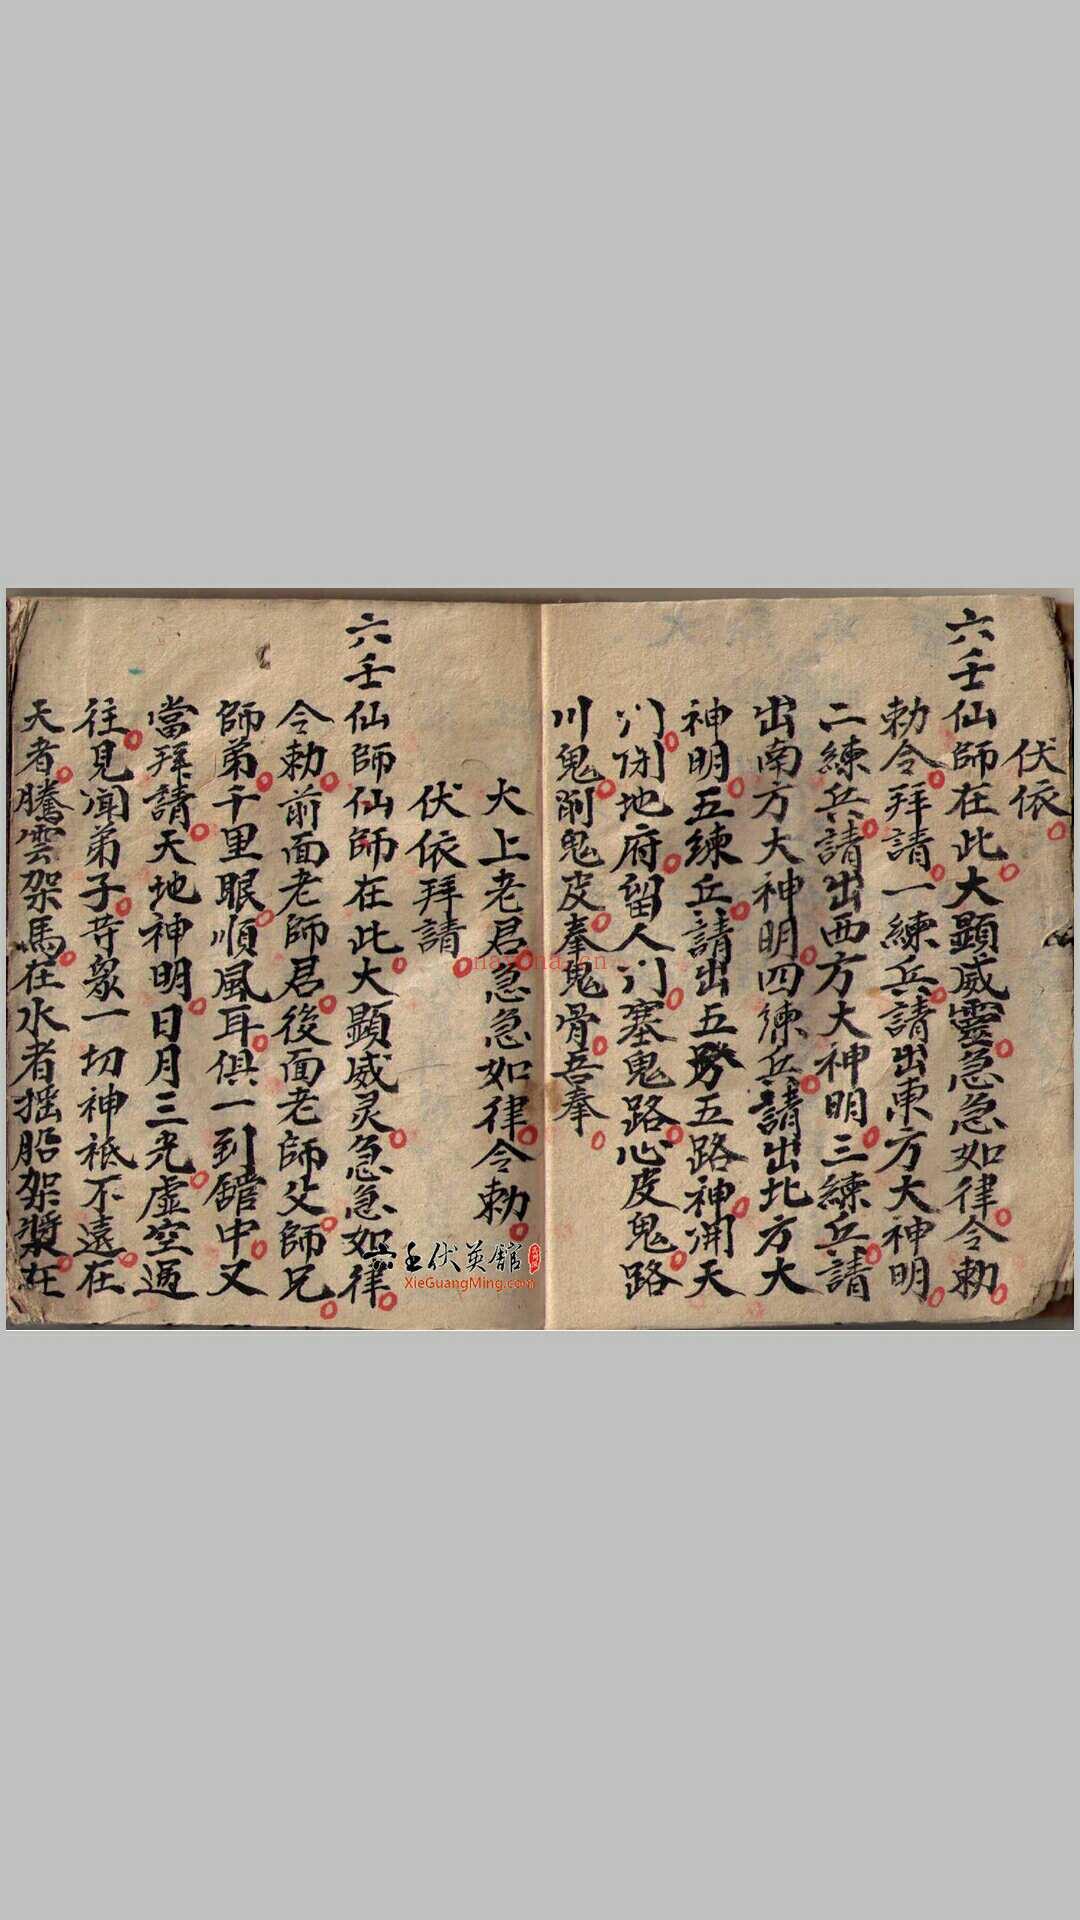 伏依
六壬仙師在此大顯威靈急急如律令勅
勅令拜請一練兵請出東方大神明
二練兵請出西方大神明三練兵請
出南方大神明四練兵請出北方大
神明五練兵請出五路神開天
門閉地府留人门塞鬼路心皮鬼路
川鬼削鬼皮奉鬼骨吾奉
大上老君急急如律令勅
伏依拜請
六壬仙師仙師在此大顯威灵急急如律
令勅前面老師君後面老師父師兄
師弟千里眼順風耳俱一到舘中又
當拜請天地神明日月三光虛空過
往見闻弟子等眾一切神祗不遠在
天者騰雲架馬在水者摇船架槳在
六壬伏英舘
XieGuangMing.com
nayona.cn